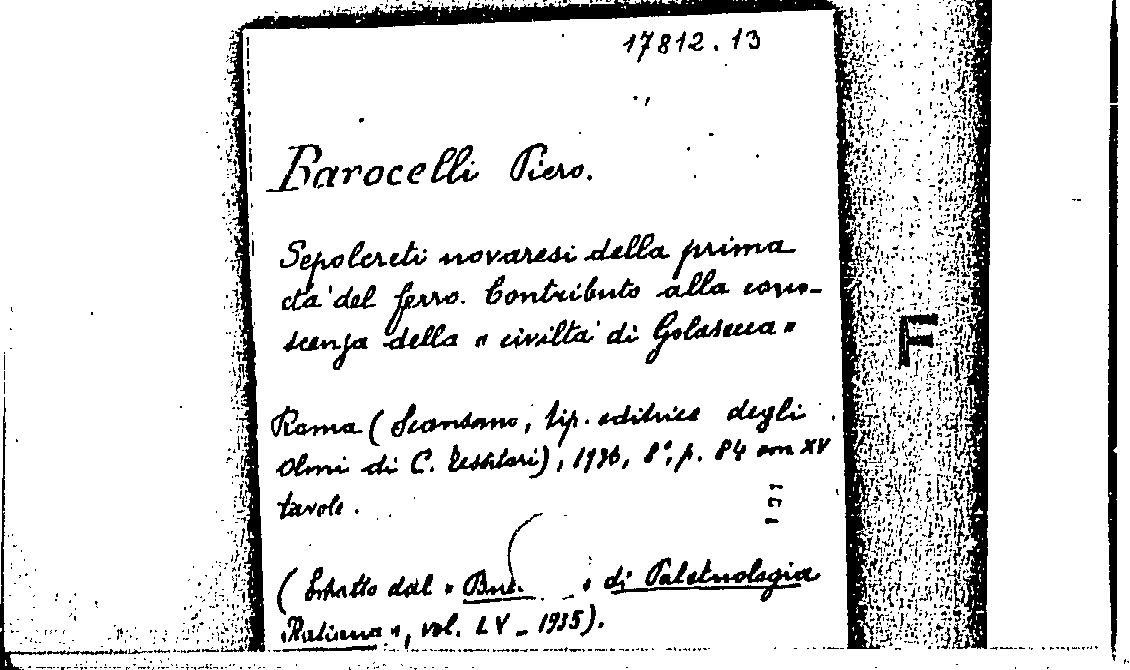 17812.13
Barocelli Piero.
Sepolcreti novaresi della prima
età del ferro. Contributo alla cono-
scenza della " civiltà di Golasecca "
Roma ( Scansano, tip. editrice degli
Olmi di C. Tessitori), 1936, 8°, p. 84 con XV
tavole.
( Estratto dal " Bull. " di Paletnologia
Italiana ", vol. LV - 1935).